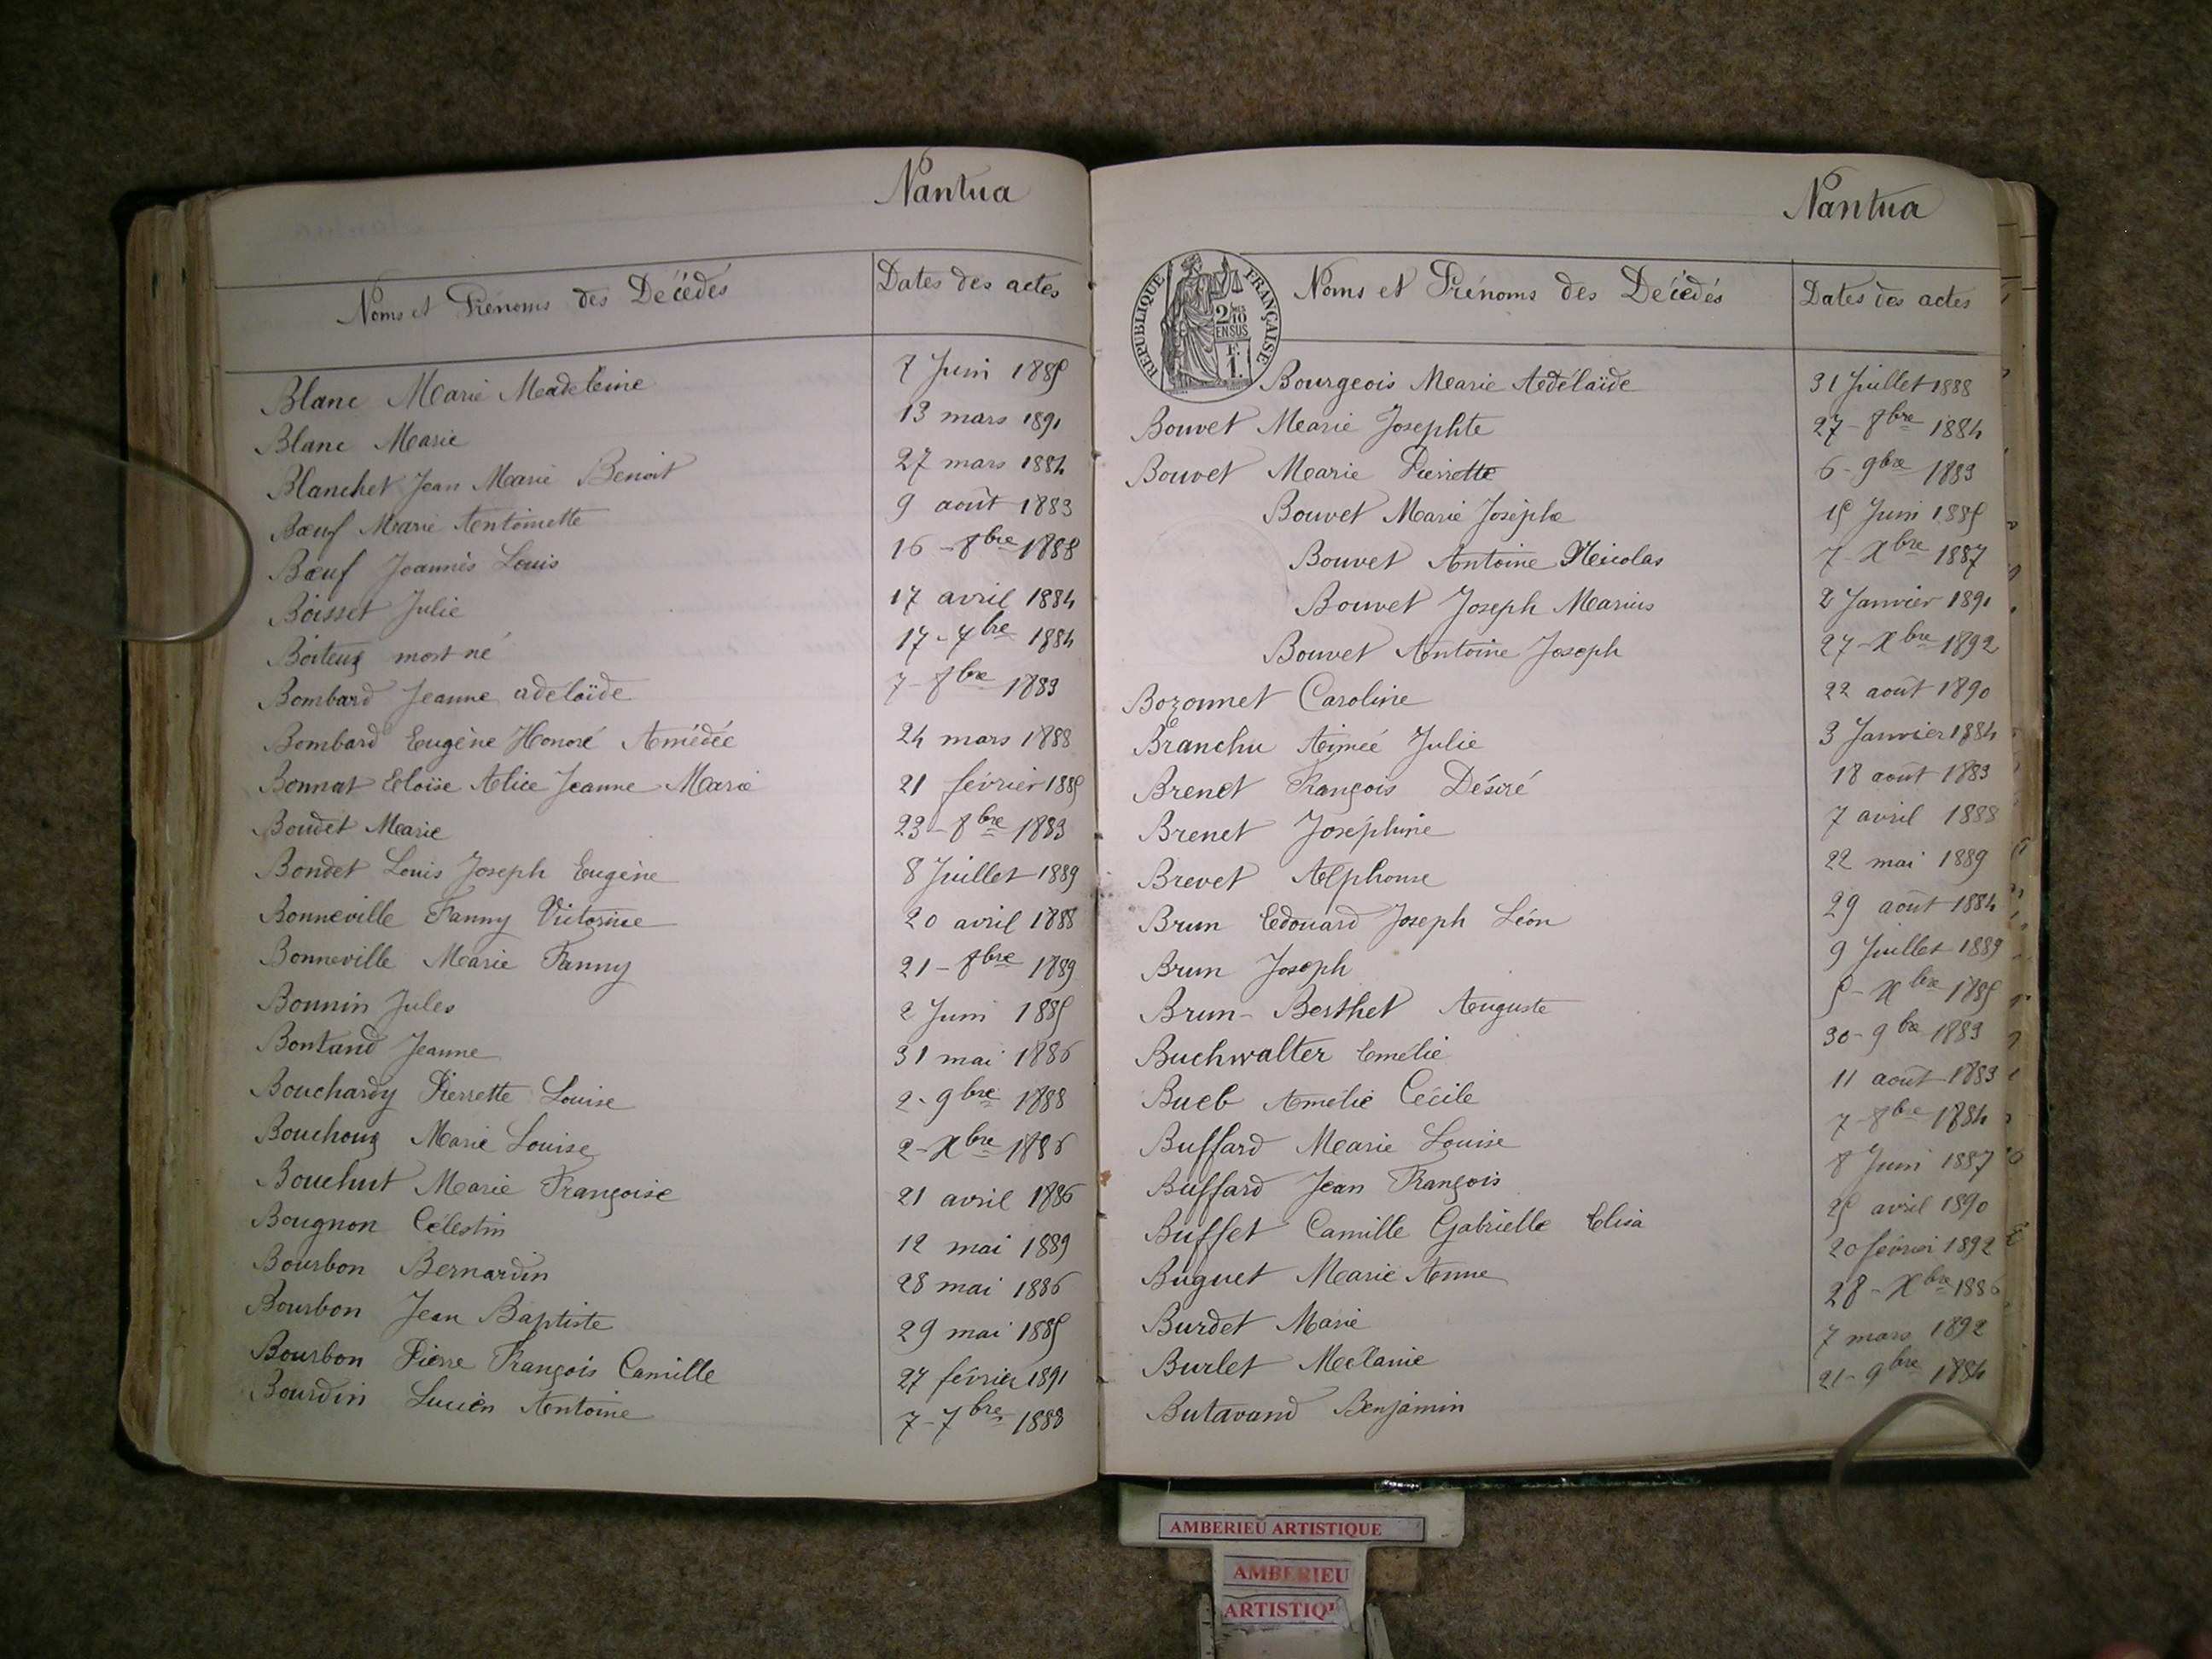 Nantua
Noms et Prénoms des Décédés Dates des actes
Blanc Marie Madeleine 7 Juin 1885
Blanc Marie 13 mars 1891
Blanchet Jean Marie Benoit 27 mars 1884
Bœuf Marie Antoinette 9 août 1883
Bœuf Joannès Louis 16 - 8bre 1888
Boisset Julie 17 avril 1884
Boiteux mort né 17 - 7bre 1884
Bombard Jeanne adelaïde 7 - 8bre 1883
Bombard Eugène Honoré Amédée 24 mars 1888
Bonnat Eloïse Alice Jeanne Marie 21 février 1885
Boudet Marie 23 - 8bre 1883
Bondet Louis Joseph Eugène 8 Juillet 1889
Bonneville Fanny Victorine 20 avril 1888
Bonneville Marie Fanny 21 - 8bre 1889
Bonnin Jules 2 Juin 1885
Bontand Jeanne 31 mai 1886
Bouchardy Pierrette Louise 2 - 9bre 1888
Bouchoux Marie Louise 2 - Xbre 1886
Bouchut Marie Françoise 21 avril 1886
Bougnon Célestin 12 mai 1889
Bourbon Bernardin 28 mai 1886
Bourbon Jean Baptiste 29 mai 1885
Bourbon Pierre François Camille 27 février 1891
Bourdin Lucien Antoine 7 - 7bre 1888
Nantua
RÉPUBLIQUE FRANÇAISE
2/10
EN SUS
F.
1.
Noms et Prénoms des Décédés Dates des actes
Bourgeois Marie Adélaïde 31 Juillet 1888
Bouvet Marie Josephte 27 - 8bre 1884
Bouvet Marie Pierrette 6 - 9bre 1883
Bouvet Marie Josèphe 15 Juin 1885
Bouvet Antoine Nicolas 7 - Xbre 1887
Bouvet Joseph Marius 2 Janvier 1891
Bouvet Antoine Joseph 27 - Xbre 1892
Bozonnet Caroline 22 août 1890
Branchu Aimée Julie 3 Janvier 1884
Brenet François Désiré 18 août 1883
Brenet Joséphine 7 avril 1888
Brevet Alphonse 22 mai 1889
Brun Edouard Joseph Léon 29 août 1884
Brun Joseph 9 Juillet 1889
Brun-Berthet Auguste 5 - Xbre 1885
Buchwalter Emélie 30 - 9bre 1883
Bueb Amélie Cécile 11 août 1883
Buffard Marie Louise 7 - 8bre 1884
Buffard Jean François 8 Juin 1887
Buffet Camille Gabrielle Elisa 25 avril 1890
Buguet Marie Anne 20 février 1892
Burdet Marie 28 - Xbre 1886
Burlet Mélanie 7 mars 1892
Butavand Benjamin 21 - 9bre 1884
AMBERIEU ARTISTIQUE
AMBERIEU